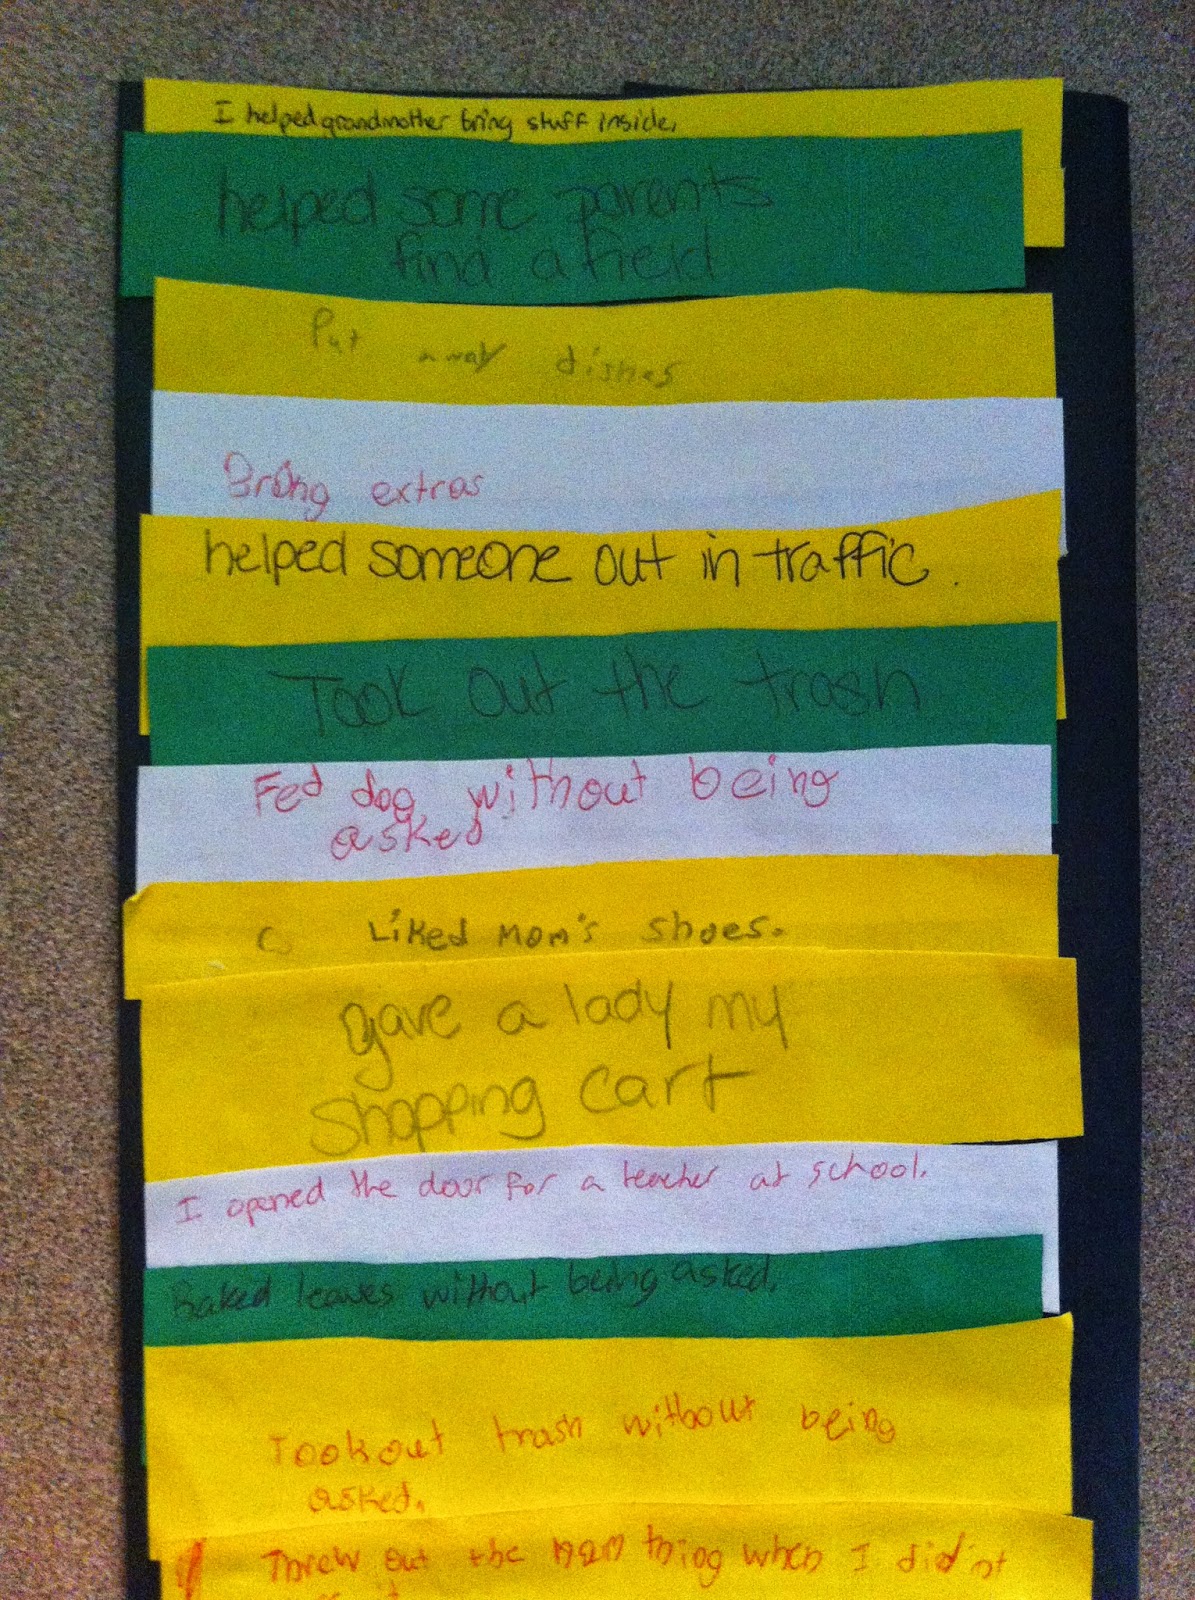 I helped grandmother bring stuff inside.
helped some parents
find a field
Put away dishes
Bring extras
helped someone out in traffic.
Took out the trash
Fed dog without being
asked
Liked Mom's shoes.
gave a lady my
shopping cart
I opened the door for a teacher at school.
Raked leaves without being asked.
Took out trash without being
asked.
Threw out the thing when I didn't